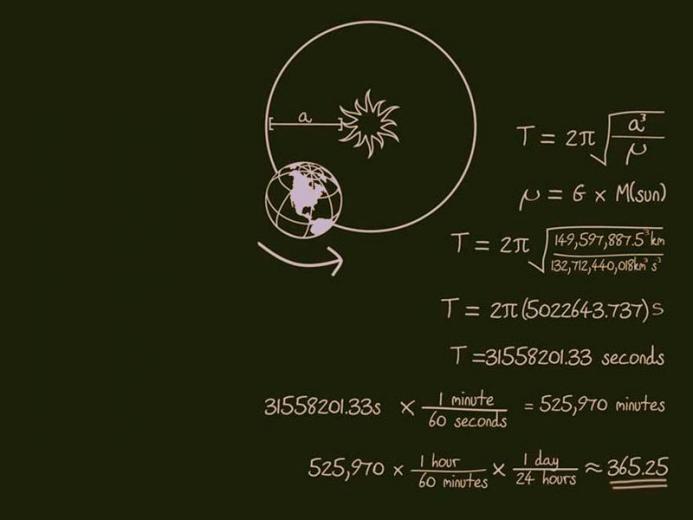 a
T = 2π√(a³/μ)
μ = G × M(sun)
T = 2π√(149,597,887.5³km/132,712,440,018km³s²)
T = 2π(5022643.737)s
T =31558201.33 seconds
31558201.33s × 1 minute/60 seconds = 525,970 minutes
525,970 × 1 hour/60 minutes × 1 day/24 hours ≈ 365.25